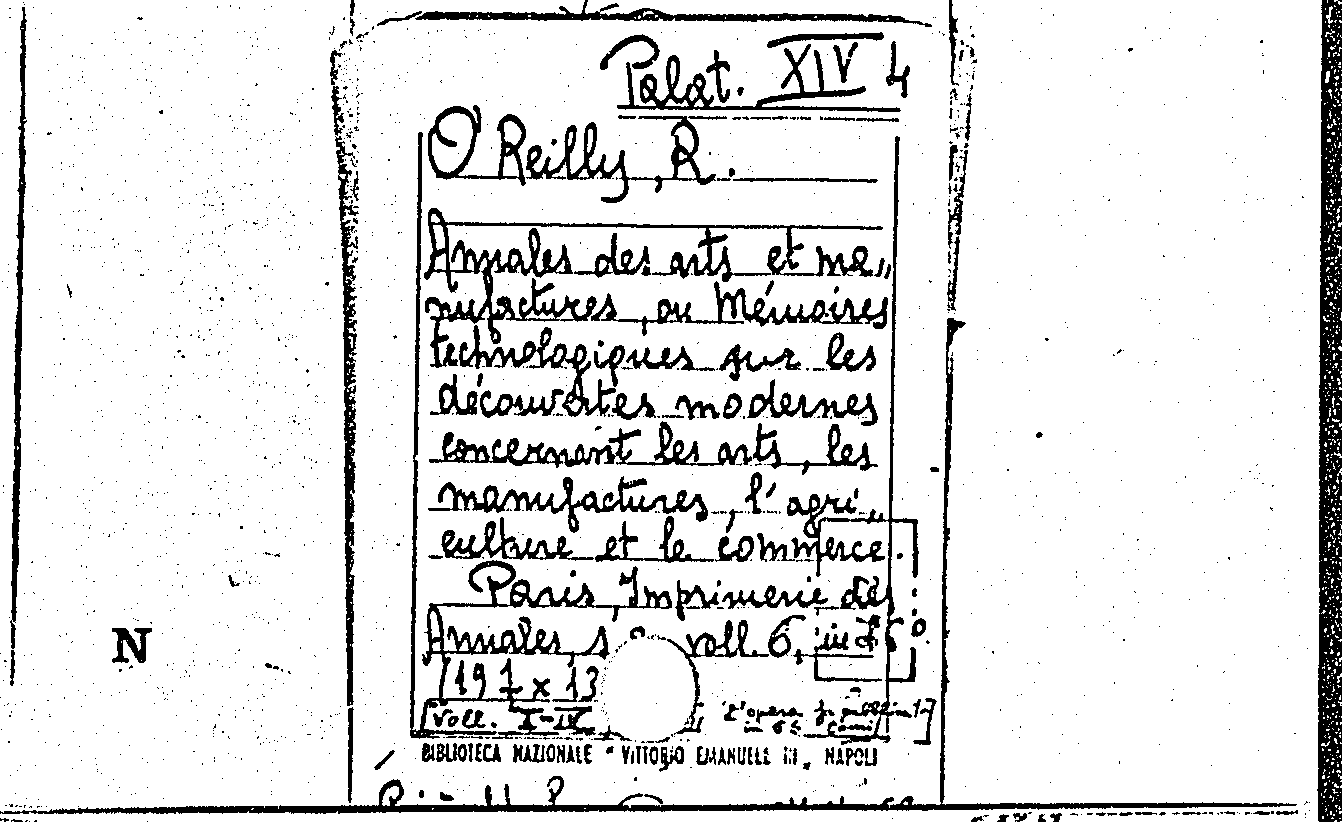 Palat. XIV 4
O'Reilly, R.
Annales des arts et ma„
nufactures, ou Mémoires
technologiques sur les
découvertes modernes
concernant les arts, les
manufactures, l'agri„
culture et le commerce.
Paris, Imprimerie des
Annales, s voll. 6, in
N
[voll. I-IX L'opera fu
in 56
BIBLIOTECA NAZIONALE "VITTORIO EMANUELE III„ NAPOLI